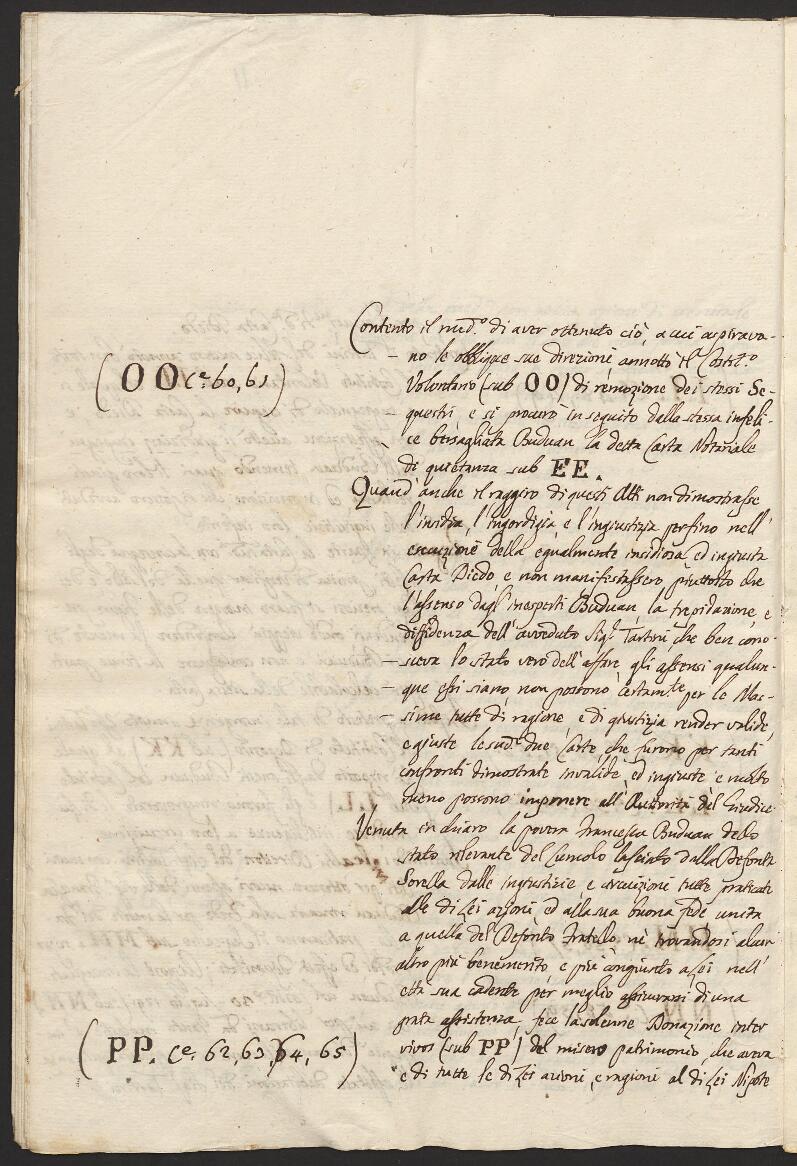 Contento il med.º di aver ottenuto ciò, a cui aspirava-
no le obblique sue direzioni annotto il Costit.º
(OO Ce. 60, 61)
Volontario (sub OO) di remozione dei stessi Se-
questri e si procurò in seguito dalla stessa infeli-
ce bersagliata Buduan la detta Carta Notariale
di quietanza sub EE.
Quand' anche il raggiro di questi Atti non dimostrasse
l'invidia, l'ingordigia e l'ingiustizia perfino nell'
esecuzione della egualmente insidiosa, ed ingiusta
Carta Diedo, e non manifestassero piuttosto che
l'assenso dagl' inesperti Buduan, la trepidazione, e
diffidenza dell' avveduto Sig.r Tartini, che ben cono-
sceva lo stato vero dell' affare, gli assensi qualun-
que essi siano, non possono certam.te per le Mas-
sime tutte di ragione, e di giustizia render valide,
e giuste le sud.e due Carte, che furono per tanti
confronti dimostrate invalide, ed ingiuste e molto
meno possono imponere all' Autorità del Giudice.
Venuta in chiaro la povera Francesca Buduan dello
stato rilevante del Cumolo lasciato dalla Defonta
Sorella dalle ingiustizie, e circuizioni tutte praticate
alle di Lei azioni, ed alla sua buona fede unita
a quella del Defonto Fratello, nè trovandosi alcun
altro più benemerito, e più congiunto a Lei nell'
età sua cadente per meglio assicurarsi di una
grata assistenza, fece la solenne Donazione inter
(PP. Ce. 62, 63, 64, 65)
vivos (sub PP) del misero patrimonio, che aveva
e di tutte le di Lei azioni, e ragioni al di Lei Nipote